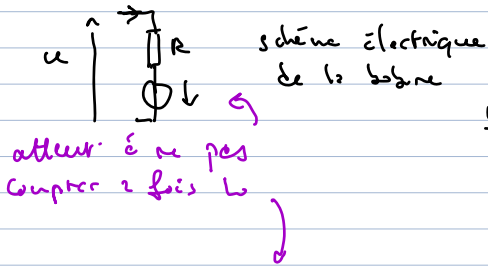 u
R
schéma électrique
de la bobine
attent. à ne pas
compter 2 fois